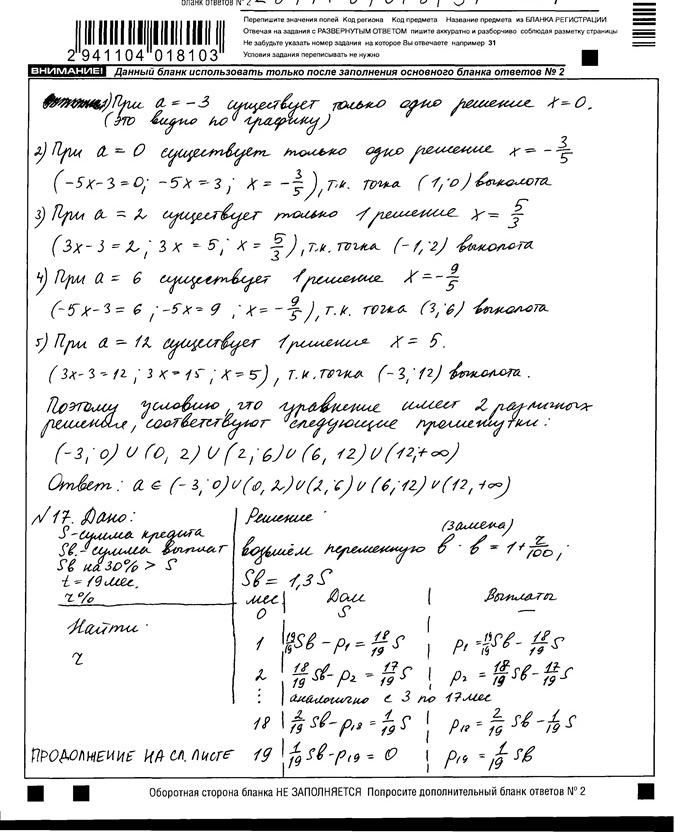 бланк ответов № 2
2 941104 018103
Перепишите значения полей Код региона Код предмета Название предмета из БЛАНКА РЕГИСТРАЦИИ
Отвечая на задания с РАЗВЕРНУТЫМ ОТВЕТОМ пишите аккуратно и разборчиво соблюдая разметку страницы
Не забудьте указать номер задания на которое Вы отвечаете например 31
Условия задания переписывать не нужно
ВНИМАНИЕ! Данный бланк использовать только после заполнения основного бланка ответов № 2
1) При a = -3 существует только одно решение x = 0.
(это видно по графику)
2) При a = 0 существует только одно решение x = -3/5
(-5x-3=0; -5x=3; x = -3/5), т.к. точка (1;0) выколота
3) При a = 2 существует только 1 решение x = 5/3
(3x-3=2; 3x=5; x = 5/3), т.к. точка (-1;2) выколота
4) При a = 6 существует 1 решение x = -9/5
(-5x-3=6; -5x=9; x = -9/5), т.к. точка (3;6) выколота
5) При a = 12 существует 1 решение x = 5.
(3x-3=12; 3x=15; x=5), т.к. точка (-3;12) выколота.
Поэтому условию, что уравнение имеет 2 различных
решения, соответствуют следующие промежутки:
(-3; 0) ∪ (0, 2) ∪ (2; 6) ∪ (6, 12) ∪ (12; +∞)
Ответ: a ∈ (-3; 0) ∪ (0, 2) ∪ (2, 6) ∪ (6; 12) ∪ (12, +∞)
№17. Дано:
S - сумма кредита
Sв. - сумма выплат
Sв на 30% > S
t = 19 мес.
r%
Найти:
r
Решение:
(замена)
возьмём переменную b. b = 1 + r/100;
Sв = 1,3S
мес | Долг | Выплаты
0 | S | —
1 | 19/19 Sb - p₁ = 18/19 S | p₁ = 19/19 Sb - 18/19 S
2 | 18/19 Sb - p₂ = 17/19 S | p₂ = 18/19 Sb - 17/19 S
⋮ аналогично с 3 по 17 мес
18 | 2/19 Sb - p₁₈ = 1/19 S | p₁₈ = 2/19 Sb - 1/19 S
19 | 1/19 Sb - p₁₉ = 0 | p₁₉ = 1/19 Sb
ПРОДОЛЖЕНИЕ НА СЛ. ЛИСТЕ
Оборотная сторона бланка НЕ ЗАПОЛНЯЕТСЯ Попросите дополнительный бланк ответов № 2